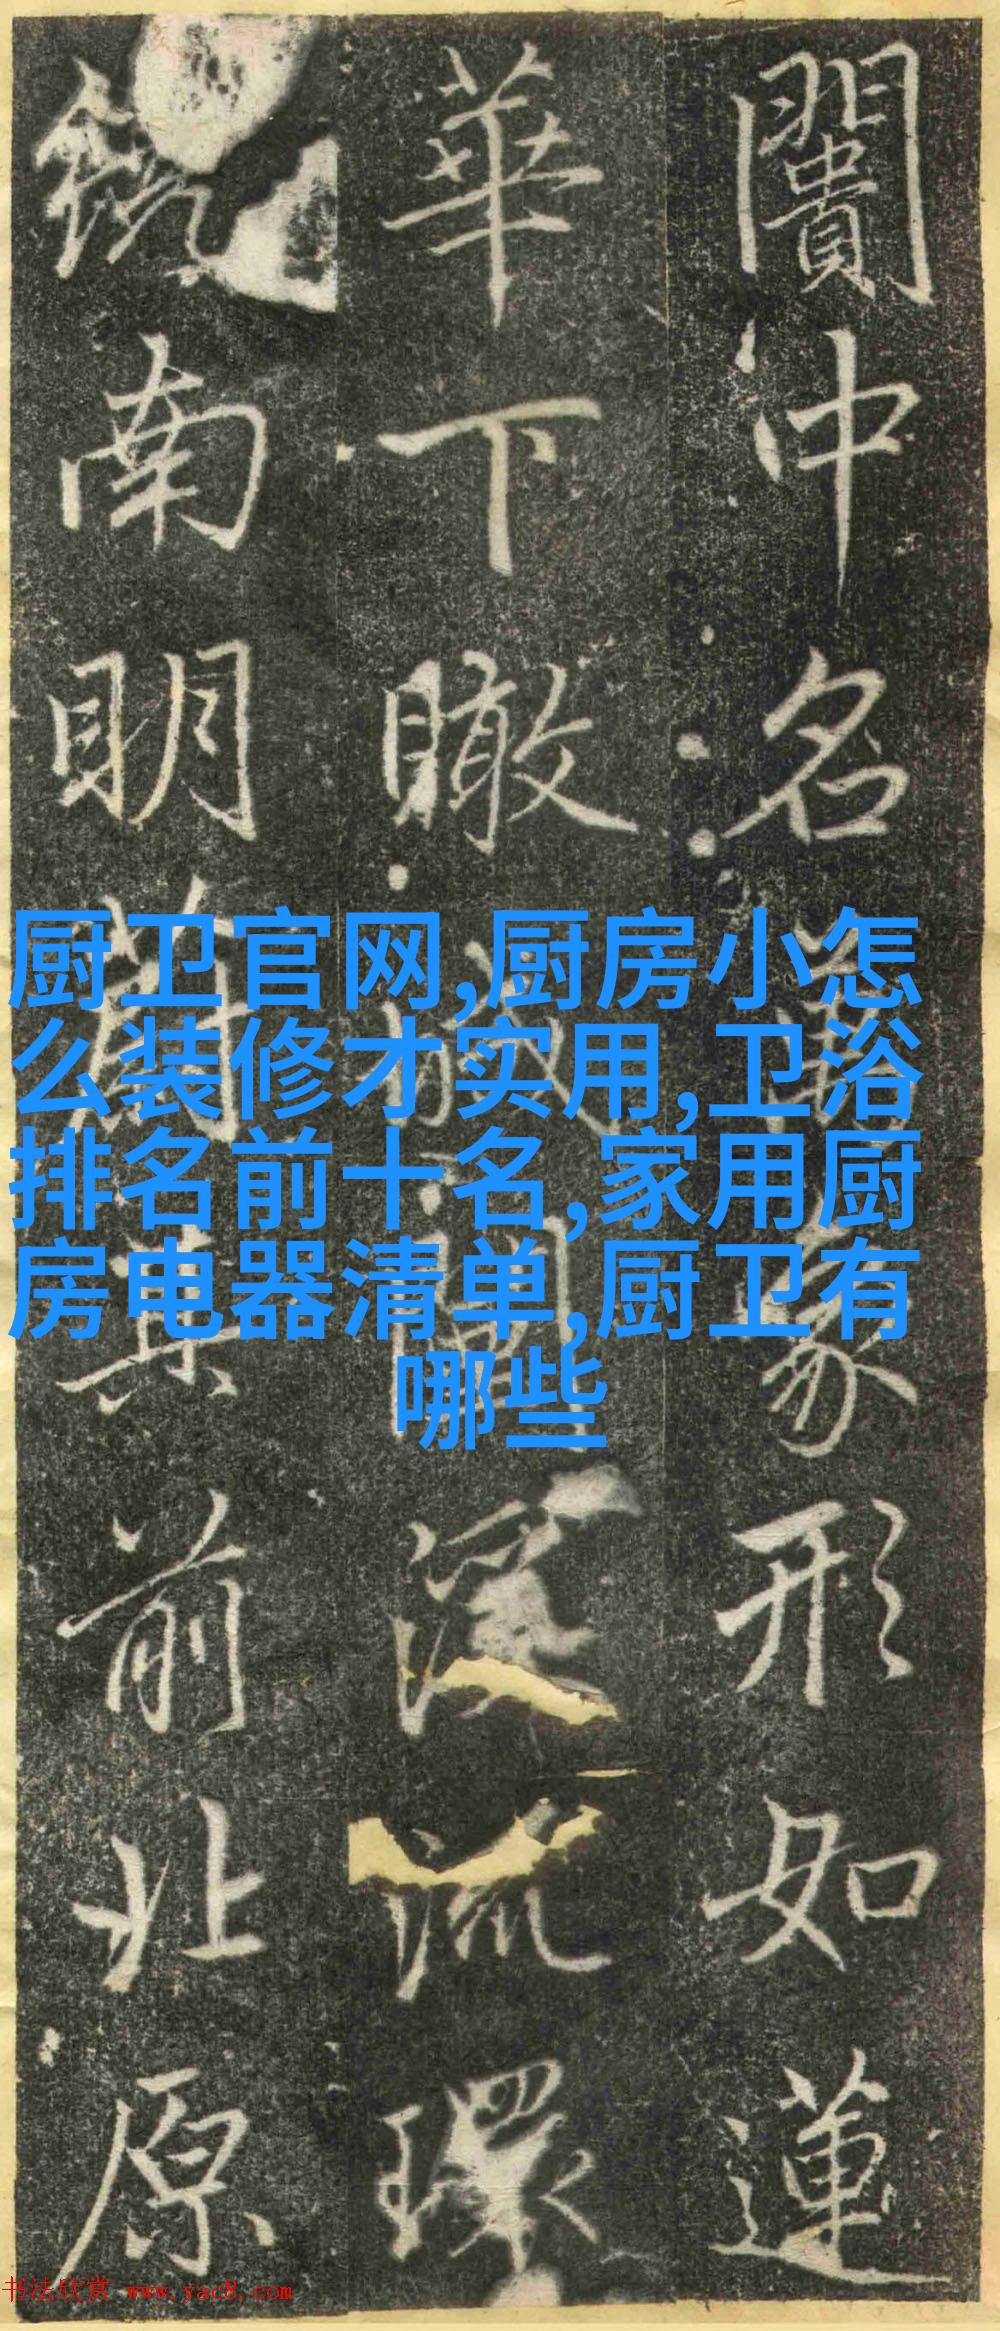 闠中名
形如蓮
華下瞰
環
南明
前北
原
厨卫官网,厨房小怎
么装修才实用,卫浴
排名前十名,家用厨
房电器清单,厨卫有
哪些
书法欣赏 www.yac8.com